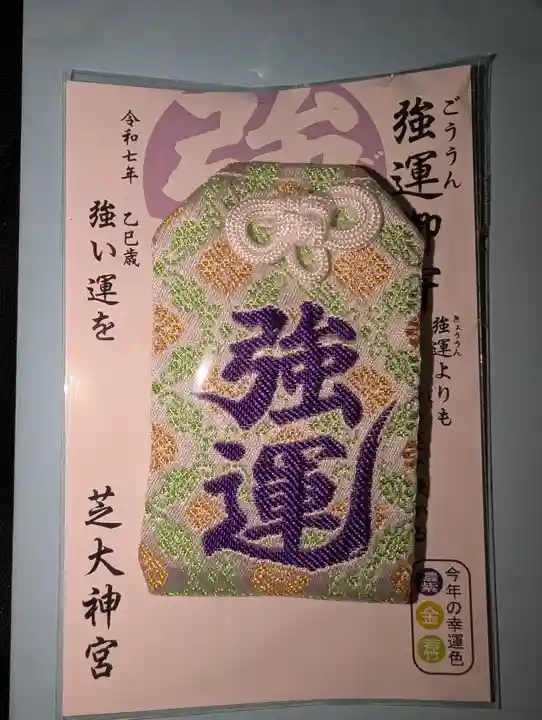 ごううん
強運御守
きょううん
強運よりも
強い運を
令和七年
乙巳歳
芝大神宮
強運
今年の幸運色
金